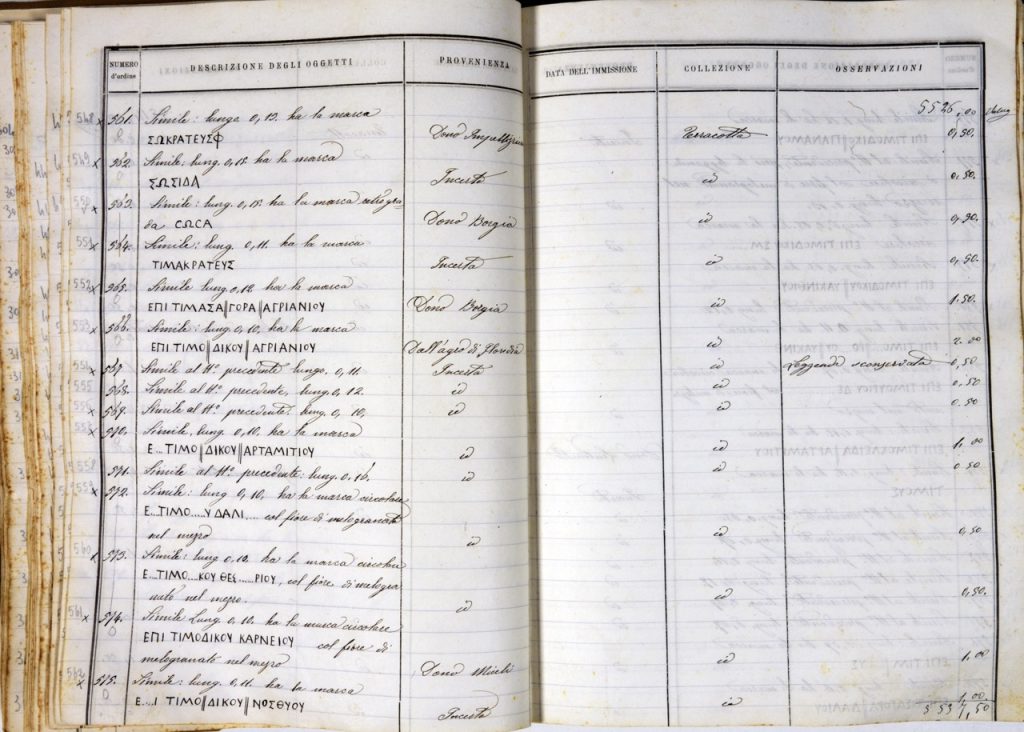 NUMERO d'ordine DESCRIZIONE DEGLI OGGETTI PROVENIENZA DATA DELL'IMMISSIONE COLLEZIONE OSSERVAZIONI
5526,00
561. Simile: lunga 0,13. ha la marca
ΣΩΚΡΑΤΕΥΣΦ Dono Terracotta 0,50.
562. Simile: lung. 0,12. ha la marca
ΣΩΣΙΔΑ Incerta id 0,50.
563. Simile: lung. 0,12. ha la marca retrogra-
da CΩCA Dono Borgia id 0,50.
564. Simile: lung. 0,11. ha la marca
ΤΙΜΑΚΡΑΤΕΥΣ Incerta id 0,50.
565. Simile lung. 0,12. ha la marca
ΕΠΙ ΤΙΜΑΣΑ||ΓΟΡΑ||ΑΓΡΙΑΝΙΟΥ Dono Borgia id 1.50.
566. Simile: lung. 0,10. ha la marca
ΕΠΙ ΤΙΜΟ||ΔΙΚΟΥ||ΑΓΡΙΑΝΙΟΥ Dall'agro di Floridia id 2.00
567. Simile al No. precedente lung. 0,11. Incerta id Leggenda sconservata 0,50
568. Simile al No. precedente, lung. 0,12. id id 0.50
569. Simile al No. precedente. lung. 0,10. id id 0.50
570. Simile, lung. 0,10. ha la marca
Ε...ΤΙΜΟ||ΔΙΚΟΥ||ΑΡΤΑΜΙΤΙΟΥ id id 1,00
571. Simile al No. precedente: lung. 0,16. id id 0.50
572. Simile: lung 0,10. ha la marca circolare
Ε...ΤΙΜΟ.....Υ ΔΑΛΙ... col fiore di melogranato
nel mezzo id id 0,50.
573. Simile: lung 0,12. ha la marca circolare
Ε...ΤΙΜΟ...ΚΟΥ ΘΕΣ......ΡΙΟΥ, col fiore di melogra
nato nel mezzo. id id 0,50.
574. Simile Lung. 0,10. ha la marca circolare
ΕΠΙ ΤΙΜΟΔΙΚΟΥ ΚΑΡΝΕΙΟΥ col fiore di
melogranato nel mezzo Dono id 1,00
575. Simile: lung. 0,11. ha la marca
Ε...Ι ΤΙΜΟ||ΔΙΚΟΥ||ΝΟΣΘΥΟΥ Incerta id 1,00.
5537,50